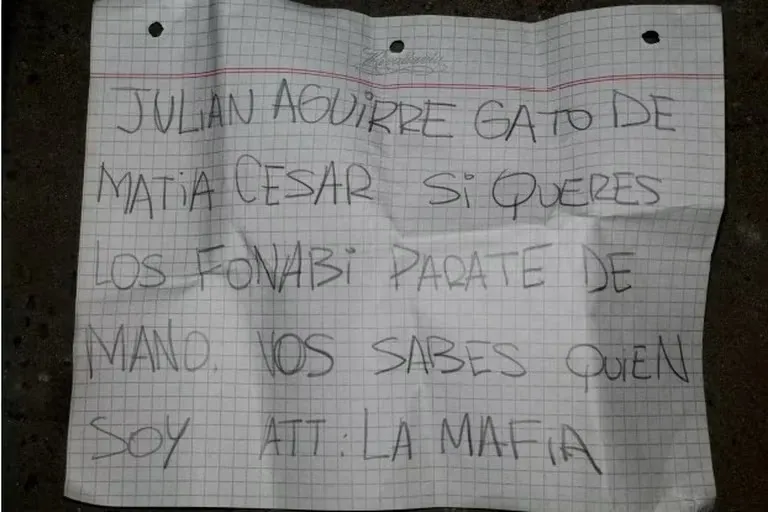 Rivadavia
JULIAN AGUIRRE GATO DE
MATIA CESAR SI QUERES
LOS FONABI PARATE DE
MANO. VOS SABES QUIEN
SOY ATT: LA MAFIA